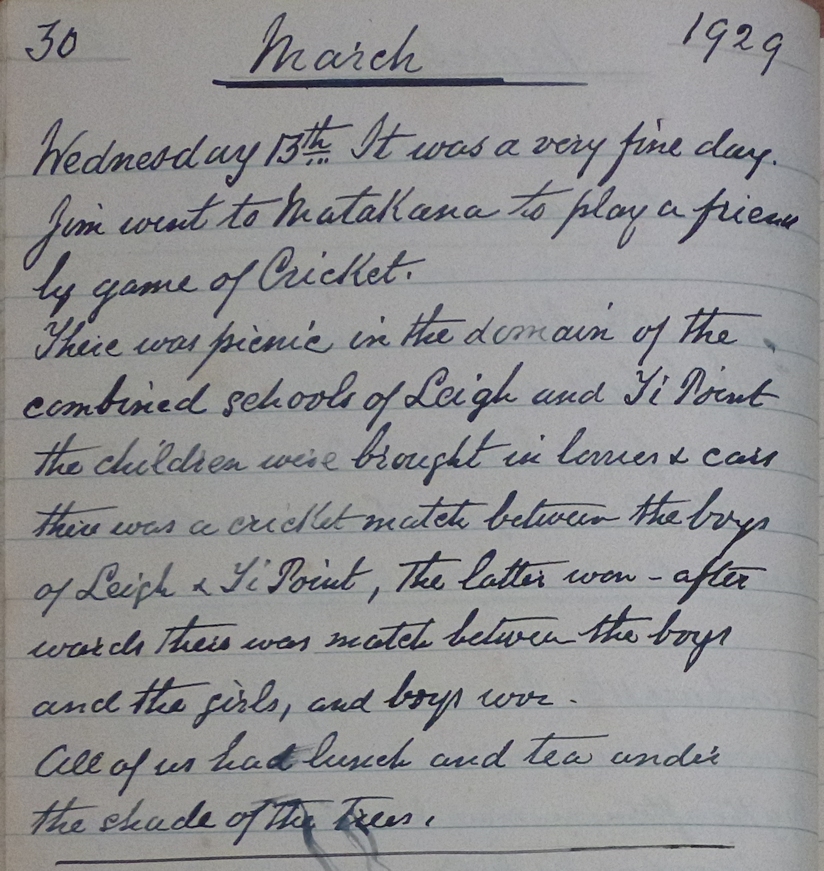 30 March 1929
Wednesday 13th It was a very fine day.
Jim went to Matakana to play a friend
ly game of Cricket.
There was picnic in the domain of the
combined schools of Leigh and Ti Point
the children were brought in lorries & cars
there was a cricket match between the boys
of Leigh & Ti Point, the latter won - after
wards there was match between the boys
and the girls, and boys won -
All of us had lunch and tea under
the shade of the trees.